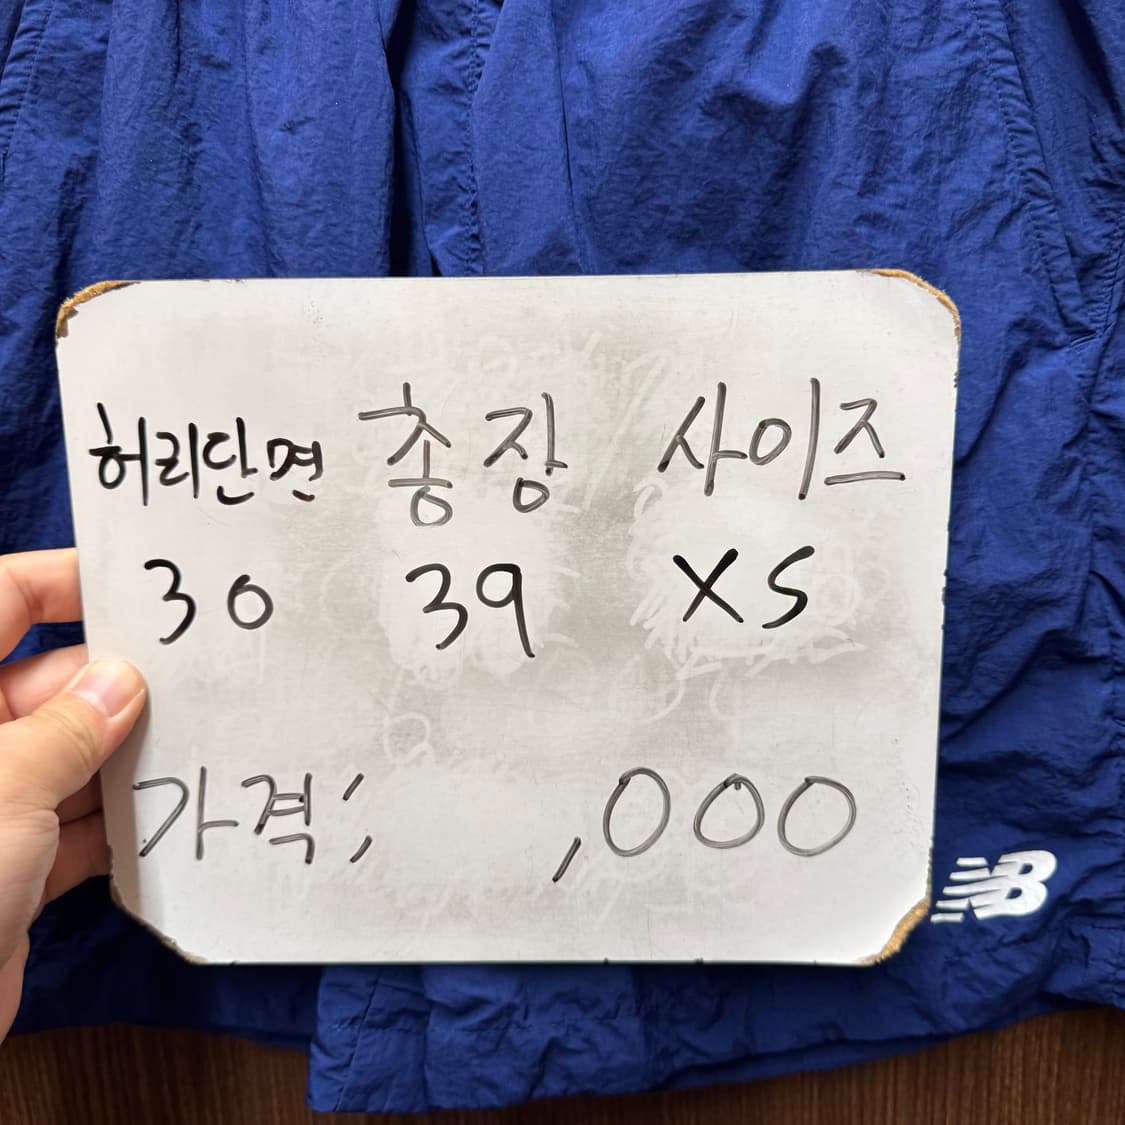 허리단면 총장 사이즈
30 39 XS
가격; ,000
NB